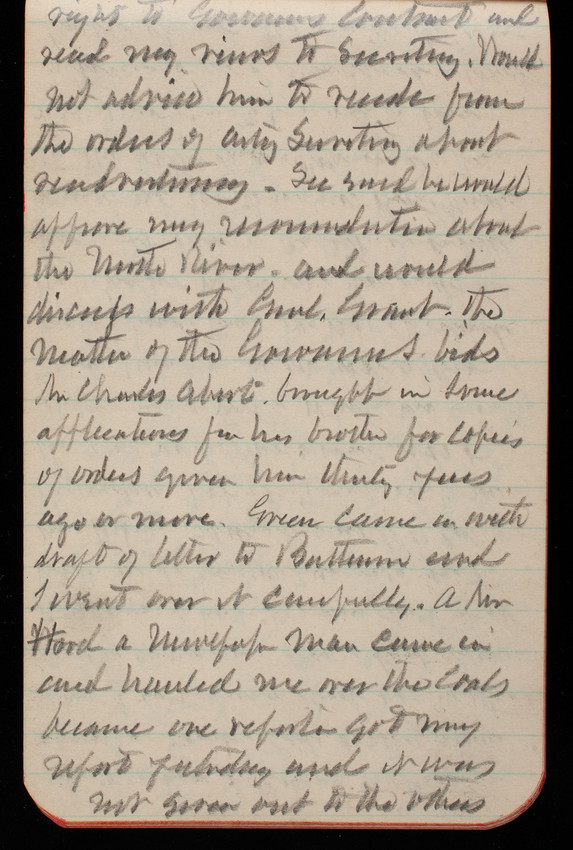 right to Gowanus Contract and
read my views to Secretary. Would
not advise him to recede from
the orders of actg Secretary about
readvertising - Sec said he would
approve my recommendation about
the North River - and would
discuss with Genl. Grant. the
matter of the Gowanus bids
Mr Charles Abert. brought in some
applications for his brother for copies
of orders given him thirty years
ago or more. Green came in with
draft of letter to and
I went over it carefully. A Mr
Hord a Newspap man came in
and hauled me over the Coals
because one reporter got my
report yesterday and it was
not given out to the others